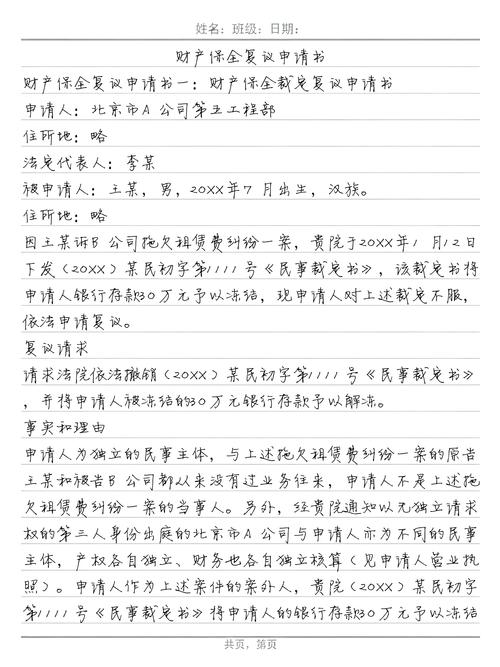 姓名：班级：日期：
财产保全复议申请书
财产保全复议申请书一：财产保全裁定复议申请书
申请人：北京市A 公司第五工程部
住所地：略
法定代表人：李某
被申请人：王某，男，20XX年7 月出生，汉族。
住所地：略
因王某诉B 公司拖欠租赁费纠纷一案，贵院于20XX年1 月12日
下发（20XX）某民初字第1111 号《民事裁定书》，该裁定书将
申请人银行存款30万元予以冻结，现申请人对上述裁定不服，
依法申请复议。
复议请求
请求法院依法撤销（20XX）某民初字第1111 号《民事裁定书》
，并将申请人被冻结的30万元银行存款予以解冻。
事实和理由
申请人为独立的民事主体，与上述拖欠租赁费纠纷一案的原告
王某和被告B 公司都从来没有过业务往来，申请人不是上述拖
欠租赁费纠纷一案的当事人。另外，经贵院通知以无独立请求
权的第三人身份出庭的北京市A 公司与申请人亦为不同的民事
主体，产权各自独立、财务也各自独立核算（见申请人营业执
照）。申请人作为上述案件的案外人，贵院（20XX）某民初字
第1111 号《民事裁定书》将申请人的银行存款30万元予以冻结
共页，第页